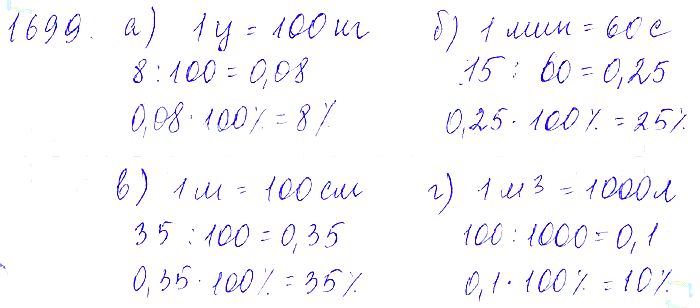 1699. а) 1 ц = 100 кг
8 : 100 = 0,08
0,08 · 100% = 8%
б) 1 мин = 60 с
15 : 60 = 0,25
0,25 · 100% = 25%
в) 1 м = 100 см
35 : 100 = 0,35
0,35 · 100% = 35%
г) 1 м3 = 1000 л
100 : 1000 = 0,1
0,1 · 100% = 10%